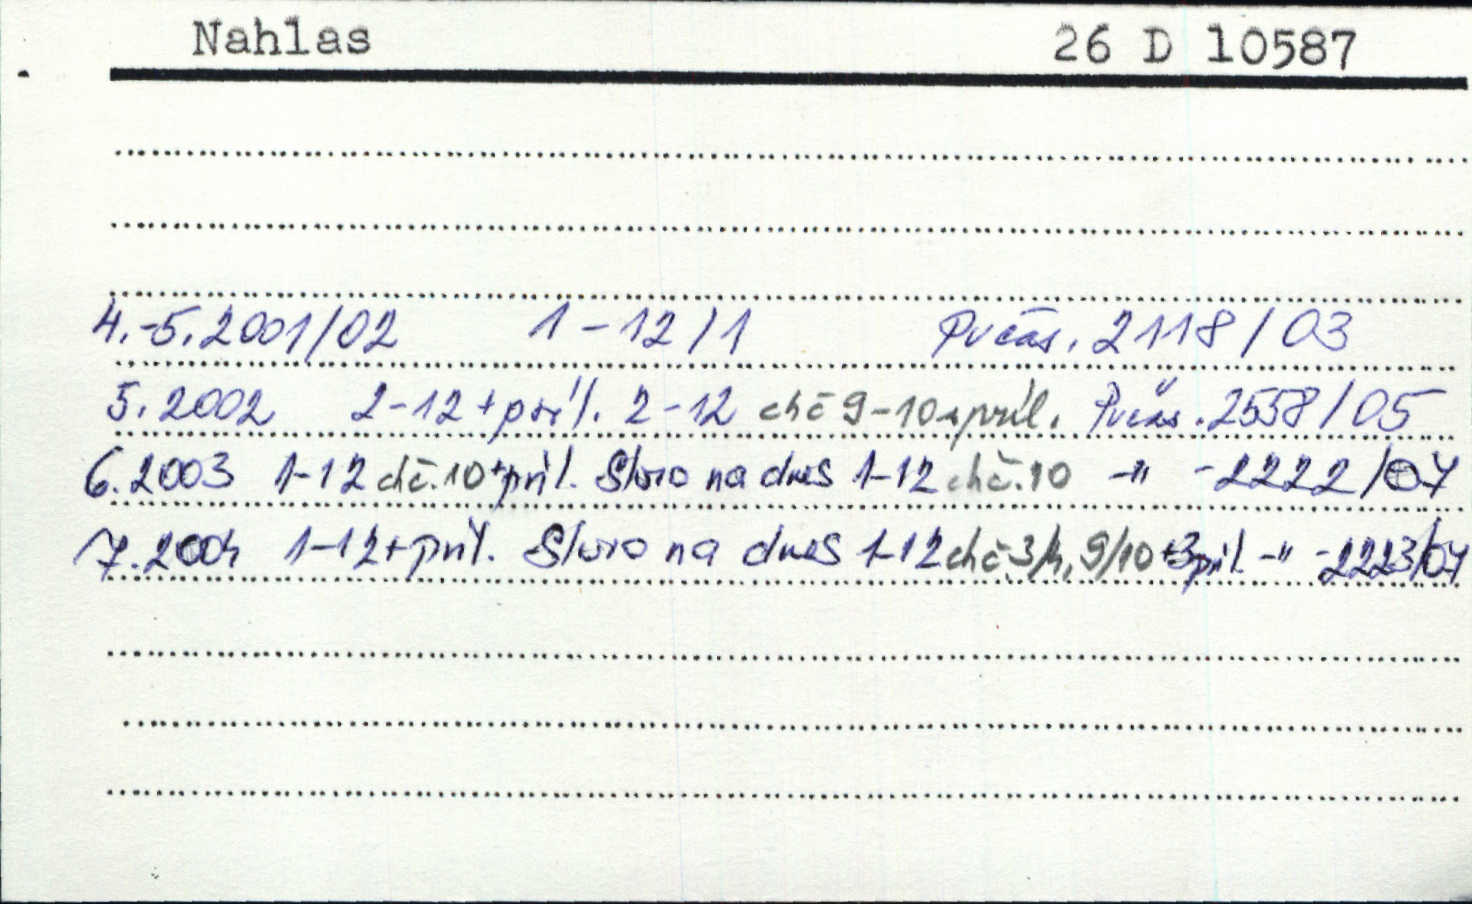 Nahlas 26 D 10587
4.-5.2001/02 1-12/1 Pvčas. 2118/03
5.2002 2-12+príl. 2-12 chč 9-10+príl. Pvčas. 2558/05
6.2003 1-12 chč.10+príl. Slovo na dnes 1-12 chč.10 -"- 2222/07
7.2004 1-12+príl. Slovo na dnes 1-12 chč.3/4, 9/10+3príl. -"- 2223/07